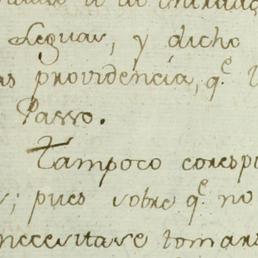 Leguas, y dicho
as providencia, q.^e
Passo.
Tampoco corespu
s; pues sobre q.^e no
necesitase tomars